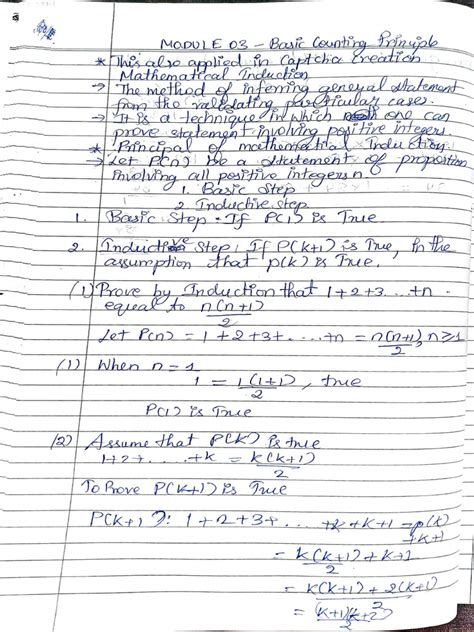 MODULE 03 - Basic Counting Principle
* This also applied in Captcha Creation
Mathematical Induction
→ The method of inferring general statement
from the validating particular cases.
→ It is a technique in which one can
prove statement involving positive integers
* Principal of mathematical Induction
→ Let P(n) be a statement of proportion
involving all positive integers n.
1. Basic Step
2. Inductive step
1. Basic Step : If P(1) is True.
2. Inductive Step : If P(k+1) is True, In the
assumption that p(k) is True.
(1) Prove by Induction that 1+2+3 ...+n
equal to n(n+1)/2
Let P(n) = 1+2+3+ ... +n = n(n+1)/2, n≥1
(1) When n = 1
1 = 1(1+1)/2, true
P(1) is True
(2) Assume that P(k) is true
1+2+ ... +k = k(k+1)/2
To Prove P(k+1) is True
P(k+1): 1+2+3+ ... +k+k+1 = p(k)
+k+1
= k(k+1)/2 + k+1
= k(k+1)+2(k+1)/2
= (k+1)(k+2)/2